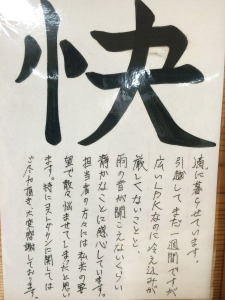 快
適に暮らせています。
引越して、まだ一週間ですが
広いLDKなのに冷え込みが
厳しくないことと、
雨の音が聞こえないくらい
静かなことに感心しています。
担当者の方々には私共の要
望で散々悩ませてしまったと思い
ます。特にコストダウンに関しては
ご尽力頂き、大変感謝しております。